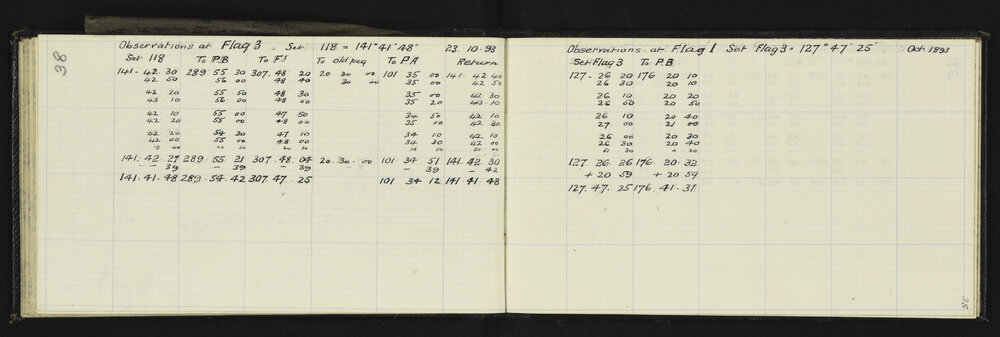 38
Observations at Flag 3 . Set 118 = 141° 41' 48" 23.10.93
Set 118 To P.B To F1 To old peg To P A Return
141 - 42 30 289 55 30 307 . 48 20 20 30 00 101 35 00 141 . 42 40
42 50 56 00 48 40 30 00 35 00 42 50
42 20 55 50 48 30 35 00 42 30
43 10 56 00 48 00 35 20 43 - 10
42 10 55 00 47 50 34 50 42 10
42 20 55 00 48 00 35 10 42 30
42 20 54 30 47 10 34 10 42 10
42 00 55 00 48 00 34 30 42 00
141. 42 27 289 . 55 . 21 307 . 48 . 04 20 . 30 . 00 101 34 51 141 . 42 . 30
- 39 - 39 - 39 - 39 - 42
141 . 41 . 48 289 . 54 . 42 307 . 47 . 25 101 34 12 141 41 . 48
Observations at Flag 1 Set Flag 3 = 127° 47' 25" Oct 1893
Set Flag 3 To P.B.
127 . 26 20 176 20 10
26 30 20 10
26 10 20 20
26 00 20 50
26 10 20 40
27 00 21 00
26 00 20 30
26 30 20 40
127 26 . 26 176 . 20 . 32
+ 20 59 + 20 59
127. 47 . 25 176 41 . 31
38